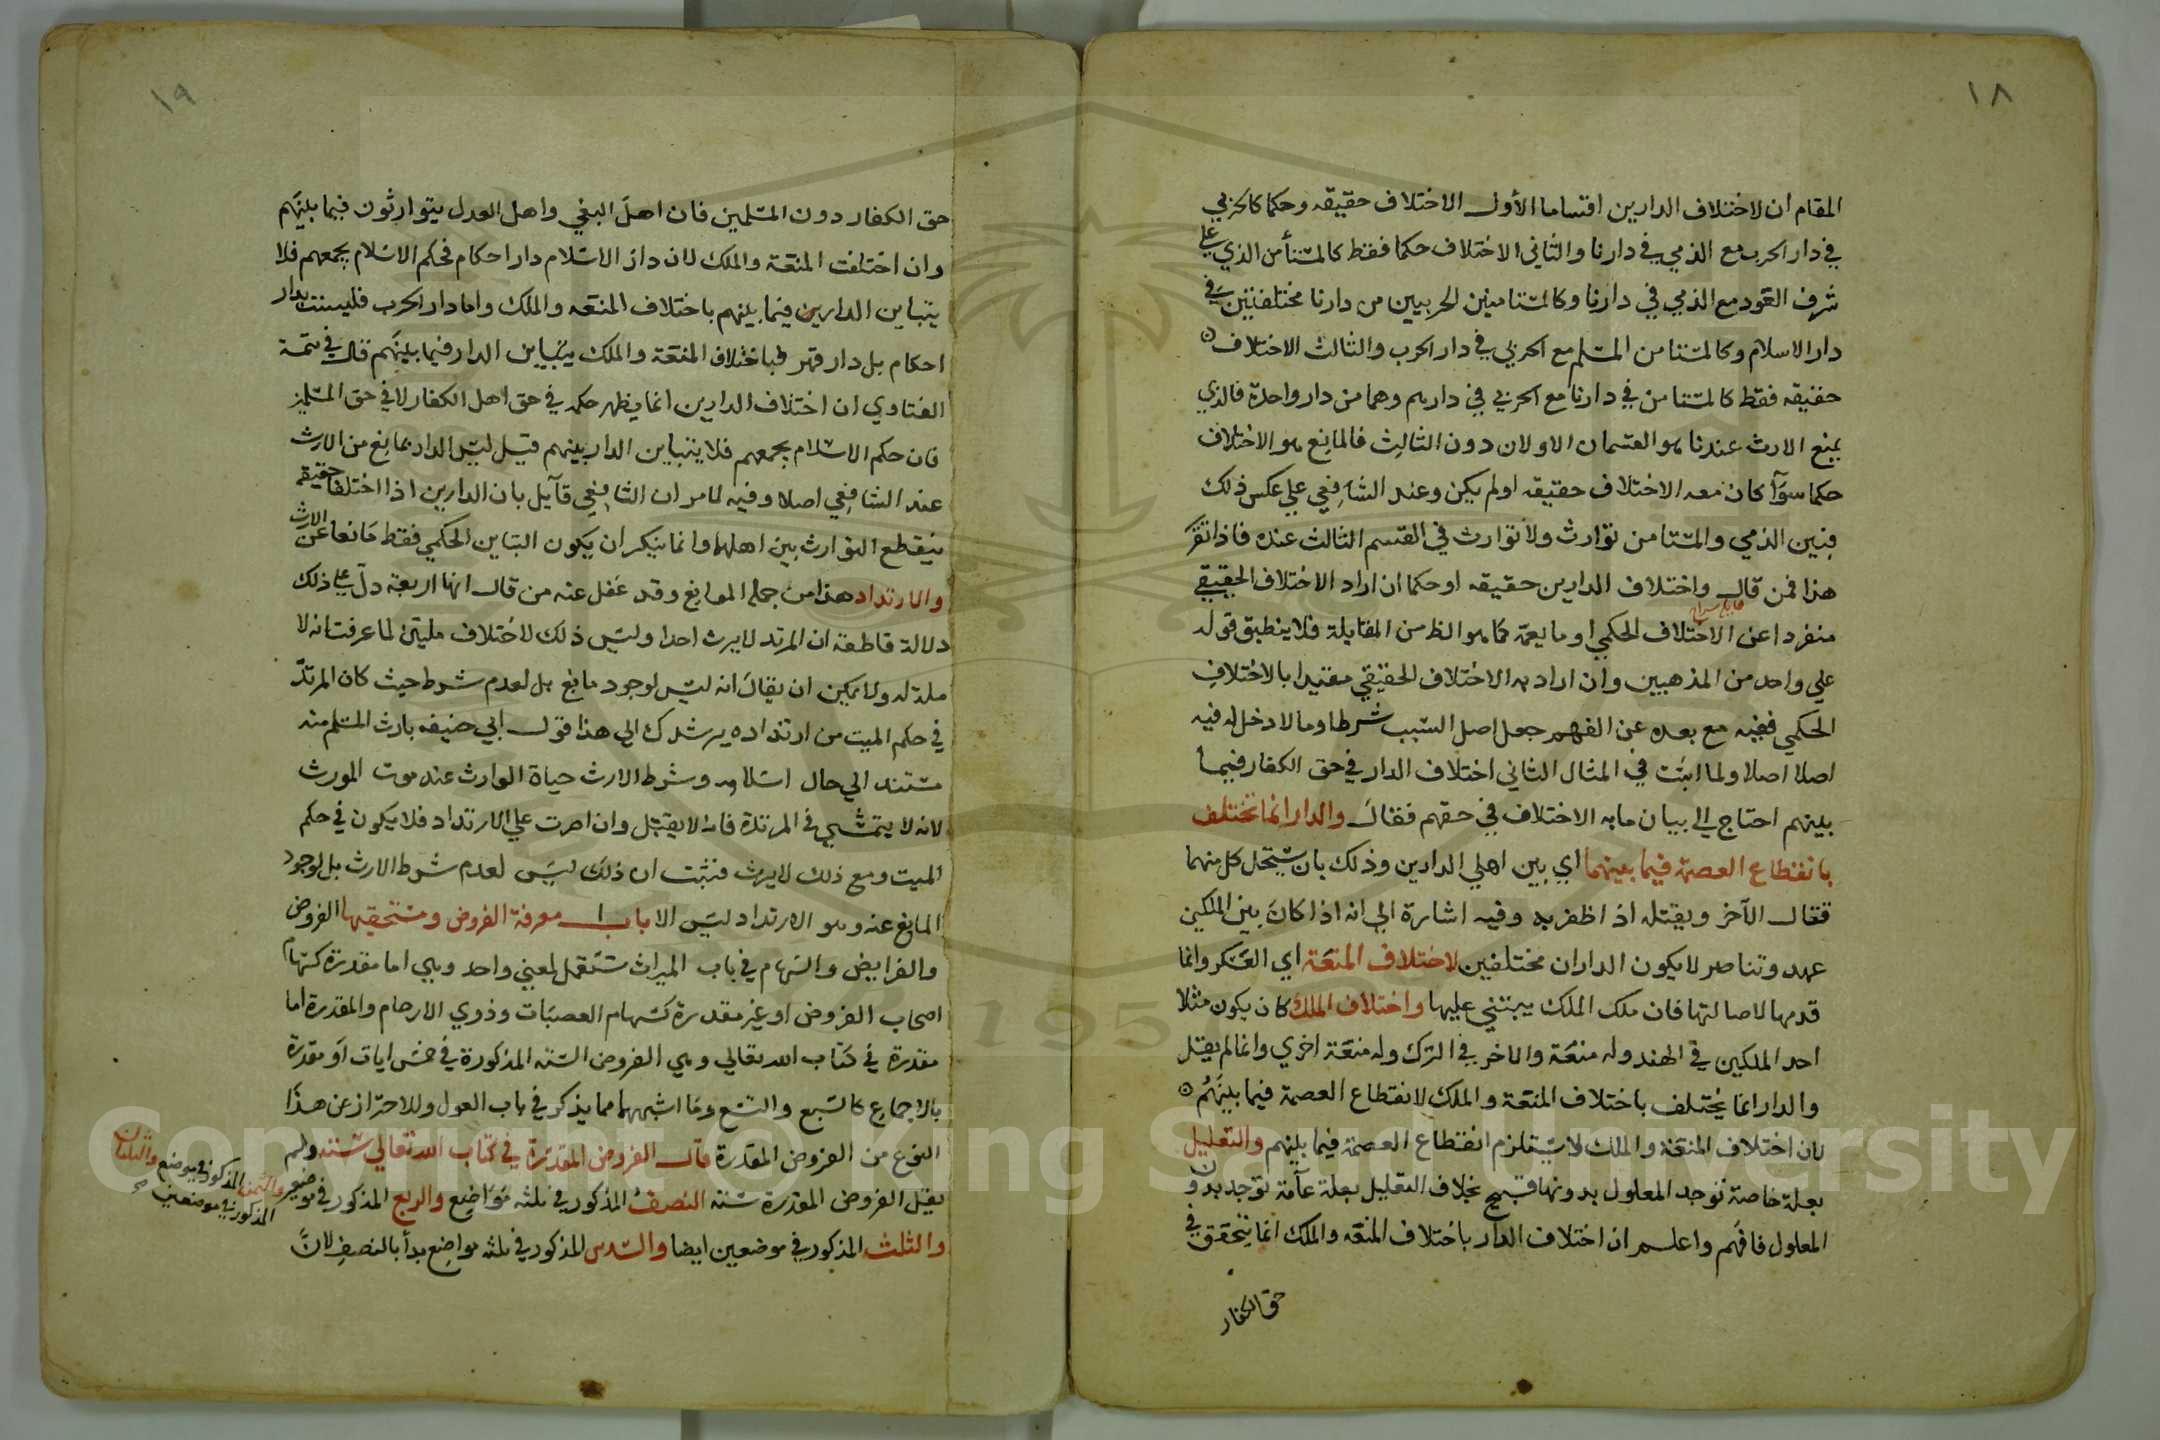 ١٨
المقام ان لاختلاف الدارين اقساما الأول الاختلاف حقيقه وحكما كالحربي
في دار الحرب مع الذمي في دارنا والثاني الاختلاف حكما فقط كالمستأمن الذي على
شرف العود مع الذمي في دارنا وكالمستامنين الحربيين من دارنا مختلفتين في
دار الاسلام وكالمستامن المسلم مع الحربي في دار الحرب والثالث الاختلاف
حقيقه فقط كالمستامن في دارنا مع الحربي في دارهم وهما من دار واحدة فالذي
يمنع الارث عندنا هو القسمان الاولان دون الثالث فالمانع هو الاختلاف
حكما سوآ كان معه الاختلاف حقيقه اولم يكن وعند الشافعي علي عكس ذلك
فبين الذمي والمستامن توارث ولا توارث في القسم الثالث عنده فاذا تقرر
هذا فمن قال واختلاف الدارين حقيقه اوحكما ان اراد الاختلاف الحقيقي
منفردا عن الاختلاف الحكمي او ما يعمه كما هو الظ من المقابلة فلا ينطبق قوله
علي واحد من المذهبين وان اراد به الاختلاف الحقيقي مقيدا بالاختلاف
الحكمي ففيه مع بعده عن الفهم جعل اصل السبب شرطا وما لا دخل له فيه
اصلا اصلا ولما اثبت في المثال الثاني اختلاف الدار في حق الكفار فيما
بينهم احتاج الي بيان ما به الاختلاف في حقهم فقال والدار انما تختلف
بانقطاع العصمة فيما بينهما اي بين اهلي الدارين وذلك بان يستحل كل منهما
قتال الآخر ويقتله اذا ظفر به وفيه اشارة الي انه اذا كان بين الملكين
عهد وتناصر لا يكون الداران مختلفين لاختلاف المنعة اي العسكر وانما
قدمها لاصالتها فان ملك الملك يبتني عليها واختلاف الملك كان يكون مثلا
احد الملكين في الهند وله منعة والاخر في الترك وله منعة اخري وانما لم يقل
والدار انما يختلف باختلاف المنعة والملك لانقطاع العصمة فيما بينهم
لان اختلاف المنعة والملك لا يستلزم انقطاع العصمة فيما بينهم والتعليل
بعلة خاصة توجد المعلول بدونها قبيح بخلاف التعليل بعلة عآمة توجد بدون
المعلول فافهم واعلم ان اختلاف الدار باختلاف المنعة والملك انما يتحقق في
حق الكفار
١٩
حق الكفار دون المسلمين فان اهل البغي واهل العدل يتوارثون فيما بينهم
وان اختلفت المنعة والملك لان دار الاسلام دار احكام فحكم الاسلام يجمعهم فلا
يتباين الدارين فيما بينهم باختلاف المنعه والملك واما دار الحرب فليست بدار
احكام بل دار قهر فباختلاف المنعة والملك يتباين الدار فيما بينهم قال في تتمة
الفتاوي ان اختلاف الدارين انما يظهر حكمه في حق اهل الكفار لا في حق المسلمين
فان حكم الاسلام يجمعهم فلا يتباين الدار بينهم قيل ليس الدار بمانع من الارث
عند الشافعي اصلا وفيه لما مر ان الشافعي قآيل بان الدارين اذا اختلفا حقيقة
ينقطع التوارث بين اهلها وانما ينكر ان يكون التباين الحكمي فقط مانعا عن الارث
والارتداد هذا من جملة الموانع وقد غفل عنه من قال انها اربعة دل على ذلك
دلالة قاطعة ان المرتد لا يرث احدا وليس ذلك لاختلاف ملتين لما عرفت انه لا
ملة له ولا يمكن ان يقال انه ليس لوجود مانع بل لعدم شرط حيث كان المرتد
في حكم الميت من ارتداده يرشدك الي هذا قول ابي حنيفه بارث المسلم منه
مستند الي حال اسلامه وشرط الارث حياة الوارث عند موت المورث
لانه لا يتمشي في المرتدة فانه لا يقتل وان اصرت علي الارتداد فلا يكون في حكم
الميت ومع ذلك لا يرث فثبت ان ذلك ليس لعدم شرط الارث بل لوجود
المانع عنه وهو الارتداد ليس الا باب معرفة الفروض ومستحقيها الفروض
والفرايض والسهام في باب الميراث تستعمل لمعني واحد وهي اما مقدرة كسهام
اصحاب الفروض او غير مقدرة كسهام العصبات وذوي الارحام والمقدرة اما
مقدرة في كتاب الله تعالي وهي الفروض الستة المذكورة في خمس ايات او مقدرة
بالاجماع كالسبع والتسع وما اشبههما مما يذكر في باب العول وللاحتراز عن هذا
النوع من الفروض المقدرة قال الفروض المقدرة في كتاب الله تعالي ستة ولم
يقل الفروض المقدرة ستة النصف المذكور في ثلثه مواضع والربع المذكور في موضعين والثمن المذكور في موضع والثلثان
المذكور في موضعين
والثلث المذكور في موضعين ايضا والسدس المذكور في ثلثه مواضع بدأ بالنصف لان
Copyright © King Saud University
1957